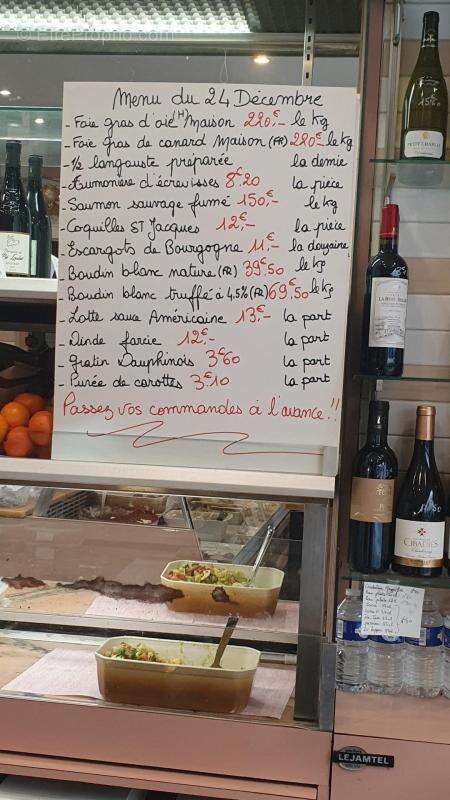 Menu du 24 Décembre
- Foie gras d'oie (H) Maison 220,- le kg
- Foie gras de canard Maison (FR) 220- le kg
- ½ langouste préparée la demie
- Lumonière d'écrevisses 8€20 la pièce
Saumon sauvage fumé 150,- le kg
- Coquilles ST Jacques 12€,- la pièce
- Escargots de Bourgogne 11€,- la douzaine
- Boudin blanc nature (FR) 39€50 le kg
- Boudin blanc truffé à 4,5% (FR) 69€50 le kg
- Lotte sauce Américaine 13€,- la part
- Dinde farcie 12€,- la part
- Gratin Dauphinois 3€60 la part
- Purée de carottes 3€10 la part
Passez vos commandes à l'avance!!
PETIT CHABLIS
CIBADIÈS
LEJAMTEL